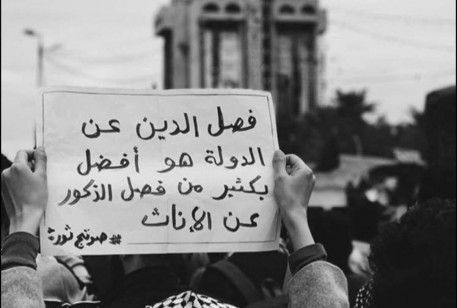 فصل الدين عن
الدولة هو أفضل
بكثير من فصل الذكور
عن الإناث
#صوتچ_ثورة